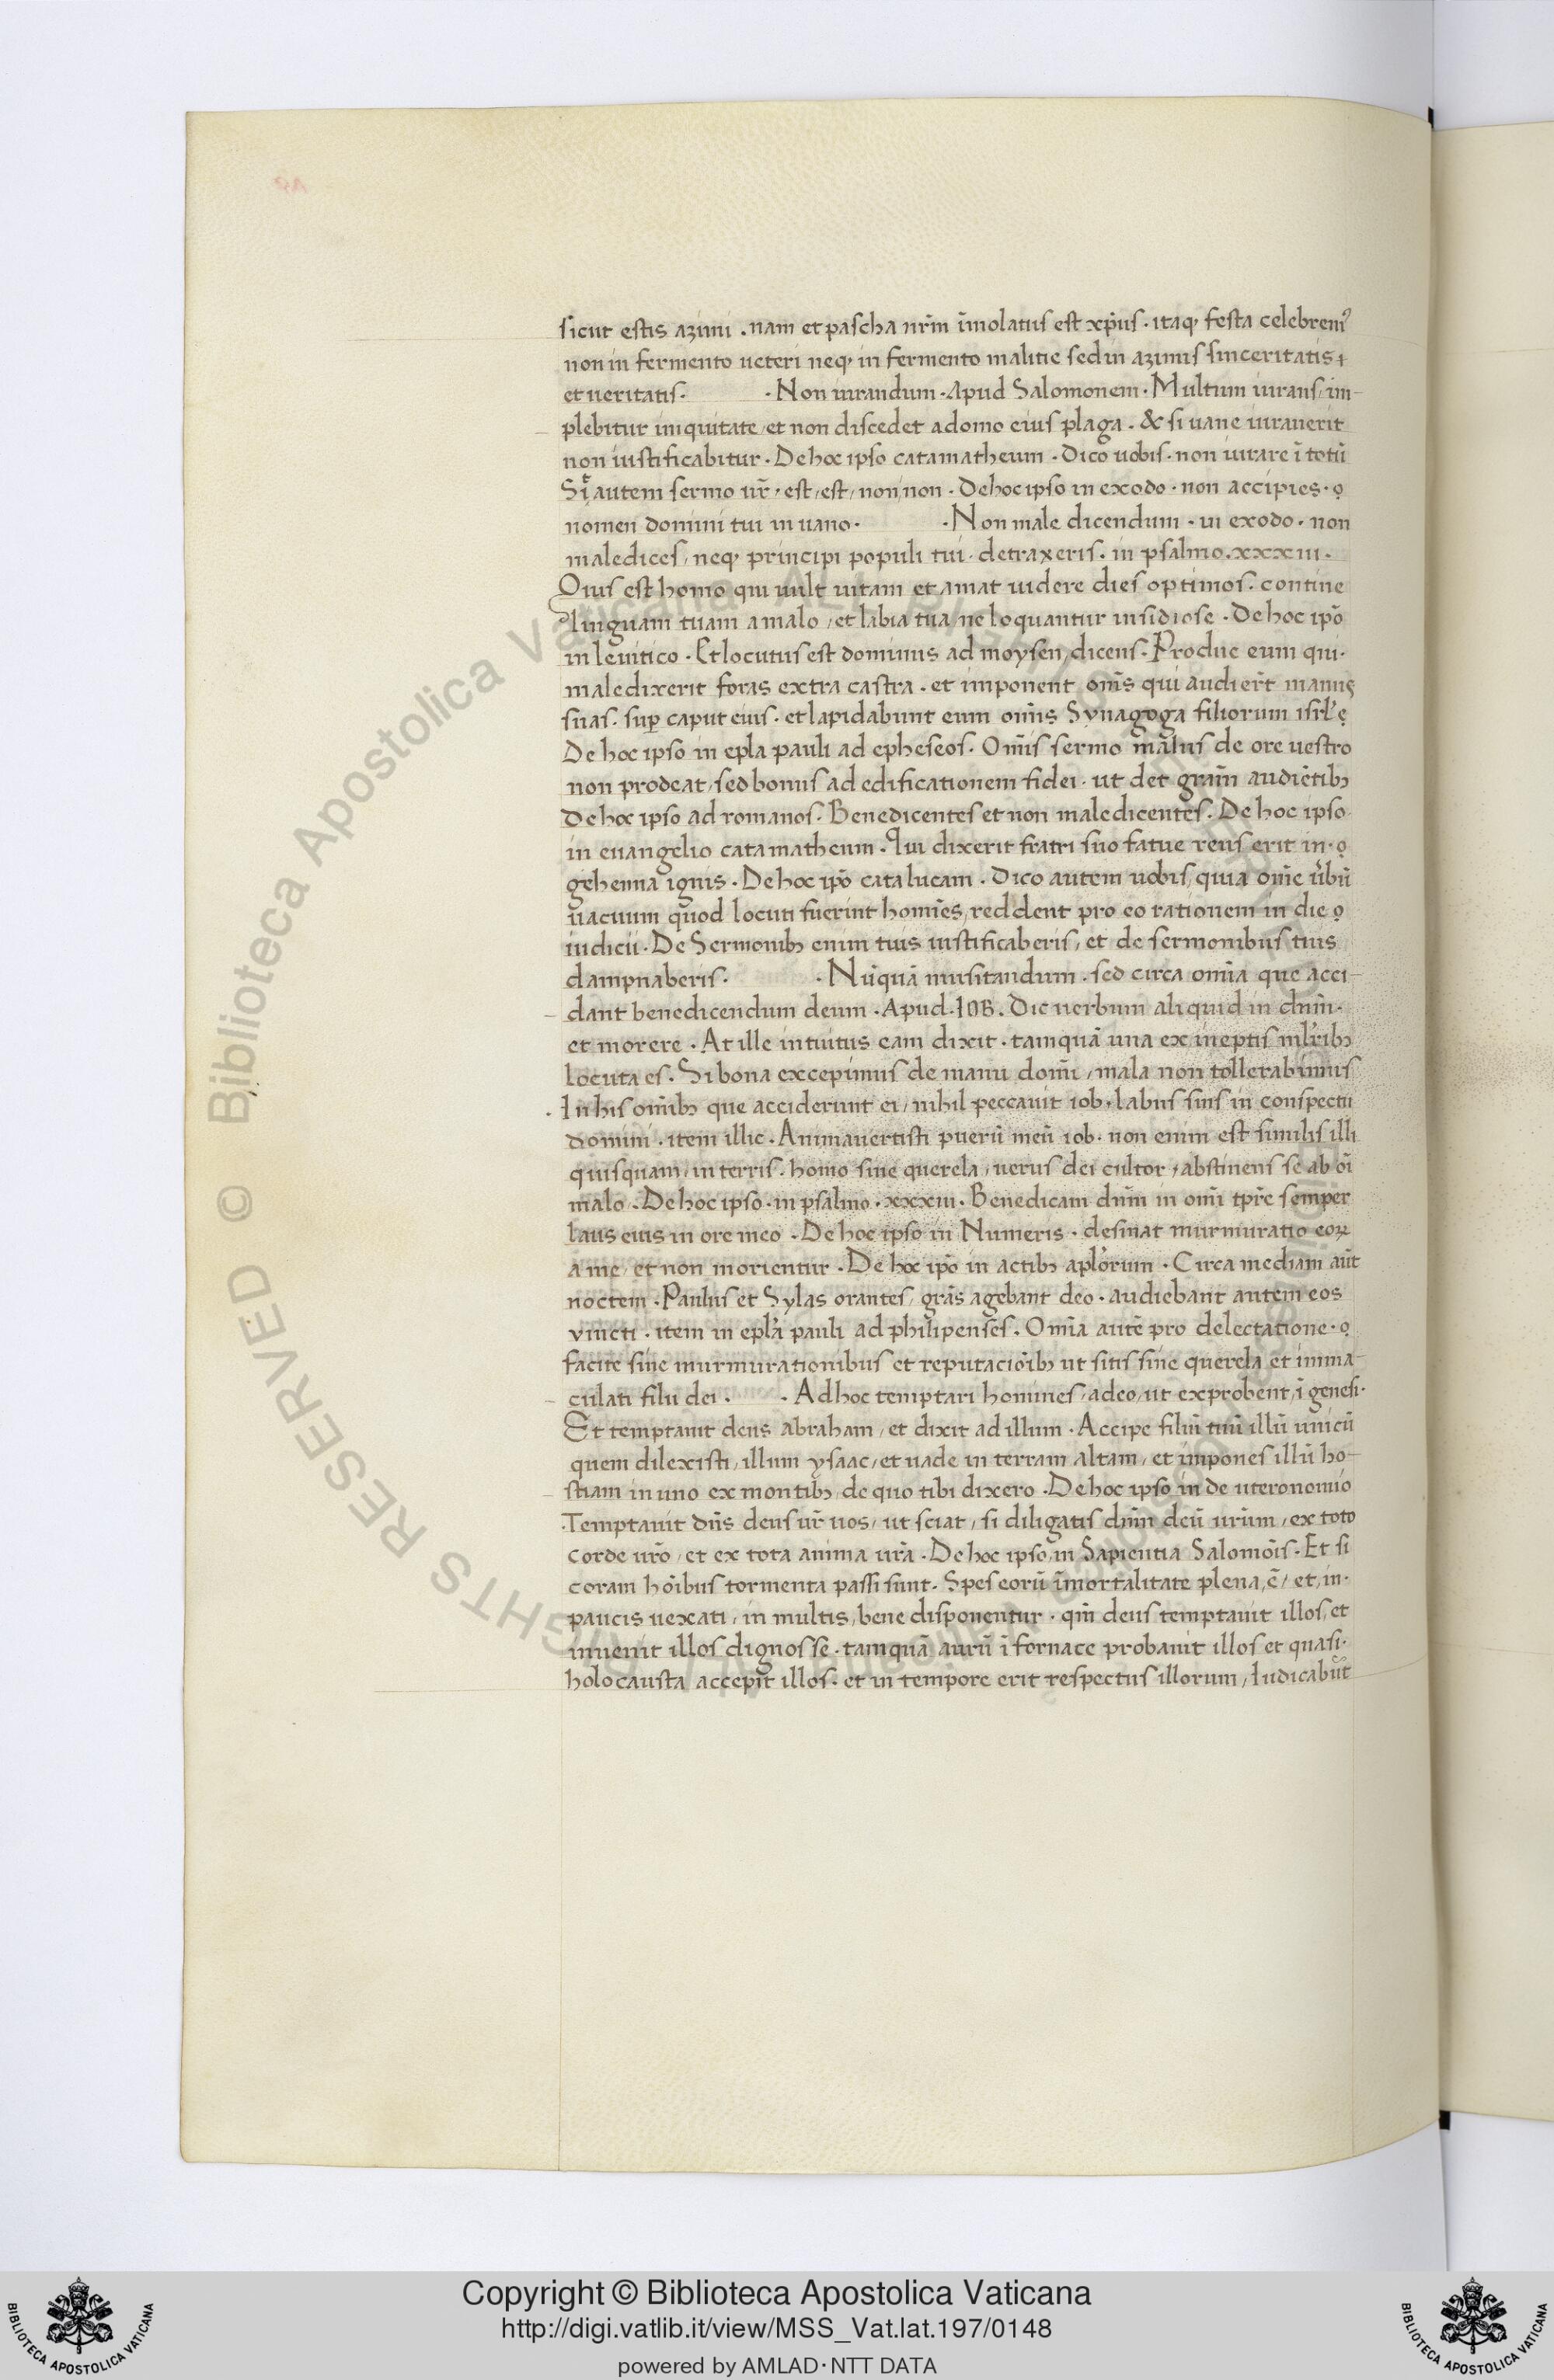 sicut estis azimi . nam et pascha nr̄m īmolatus est xp̄us · itaq; festa celebrem᾽
non in fermento ueteri neq; in fermento malitie sed in azimis sinceritatis
et ueritatis · · Non iurandum · Apud Salomonem · Multum iurans, im-
plebitur iniquitate, et non discedet a domo eius plaga . & si uane iurauerit
non iustificabitur · De hoc ipso catamatheum · Dico uobis · non iurare ī totū
Sit autem sermo ur̄ · est, est, non, non · De hoc ipso in exodo · non accipies ·
nomen domini tui in uano · · Non male dicendum · in exodo · non
maledices, neq; principi populi tui · detraxeris . in psalmo . xxxiii .
Quis est homo qui uult uitam et amat uidere dies optimos . contine
linguam tuam a malo, et labia tua ne loquantur insidiose · De hoc ip̄o
in leuitico · Et locutus est dominus ad moysen, dicens · Produc eum qui ·
maledixerit foras extra castra . et imponent om̄s qui audier̄t manus
suas . sup̱ caput eius . et lapidabunt eum om̄is Synagoga filiorum isrl̄
De hoc ipso in epla pauli ad epheseos . Om̄is sermo malus de ore uestro
non prodeat, sed bonus ad edificationem fidei · ut det gram̄ audiētib;
De hoc ipso ad romanos . Benedicentes et non maledicentes . De hoc ipso
in euangelio catamatheum · Qui dixerit fratri suo fatue reus erit in ·
gehenna ignis · De hoc ip̄o catalucam · Dico autem uobis, quia om̄e u̓bū
uacuum quod locuti fuerint homīes, reddent pro eo rationem in die
iudicii · De Sermonib; enim tuis iustificaberis, et de sermonibus tuis
dampnaberis · · Nūquā musitandum · sed circa om̄ia que acci-
dant benedicendum deum · Apud · IOB . Dic uerbum aliquid in dnm̄ ·
et morere · At ille intuitus eam dixit · tamquā una ex ineptis mlr̓ib;
locuta es . Si bona excepimus de manu domī, mala non tollerabimus
. In his om̄ib; que acciderunt ei, nihil peccauit iob, labiis suis in conspectu
domini · item illic · Animauertisti puerū meū iob · non enim est similis illi
quisquam, in terris . homo sine querela, uerus dei cultor, abstinens se ab oī
malo · De hoc ipso · in psalmo · xxxiii · Benedicam dnm̄ in omī tp̄re semper
laus eius in ore meo · De hoc ipso in Numeris · desinat murmuratio eoꝝ
a me, et non morientur · De hoc ip̄o in actib; aplo̓rum · Circa mediam aūt
noctem · Paulus et Sylas orantes, grās agebant deo · audiebant autem eos
vincti · item in epl̄a pauli ad philipenses . Om̄ia autē pro delectatione ·
facite sine murmurationibus et reputaciōib; ut sitis sine querela et imma-
culati filii dei · · Ad hoc temptari homines, adeo, ut exprobent, ī genesi ·
Et temptauit deus abraham, et dixit ad illum · Accipe filiū tuū illū unicū
quem dilexisti, illum ysaac, et uade in terram altam, et impones illū ho-
stiam in uno ex montib; de quo tibi dixero · De hoc ipso in deuteronomio
. Temptauit dn̄s deus ur̄ uos, ut sciat, si diligatis dnm̄ deū urūm, ex toto
corde ur̄o, et ex tota anima ur̄a · De hoc ipso, in Sapientia Salomōis · Et si
coram hōibus tormenta passi sunt · Spes eorū īmortalitate plena, ē, et, in ·
paucis uexati, in multis, bene disponentur · qm̄ deus temptauit illos, et
inuenit illos dignos sē · tamquā aurū ī fornace probauit illos et quasi ·
holocausta accepit illos · et in tempore erit respectus illorum, Iudicabūt
© Biblioteca Apostolica Vaticana ALL RIGHTS RESERVED
Copyright © Biblioteca Apostolica Vaticana
http://digi.vatlib.it/view/MSS_Vat.lat.197/0148
powered by AMLAD · NTT DATA
BIBLIOTECA APOSTOLICA VATICANA
BIBLIOTECA APOSTOLICA VATICANA